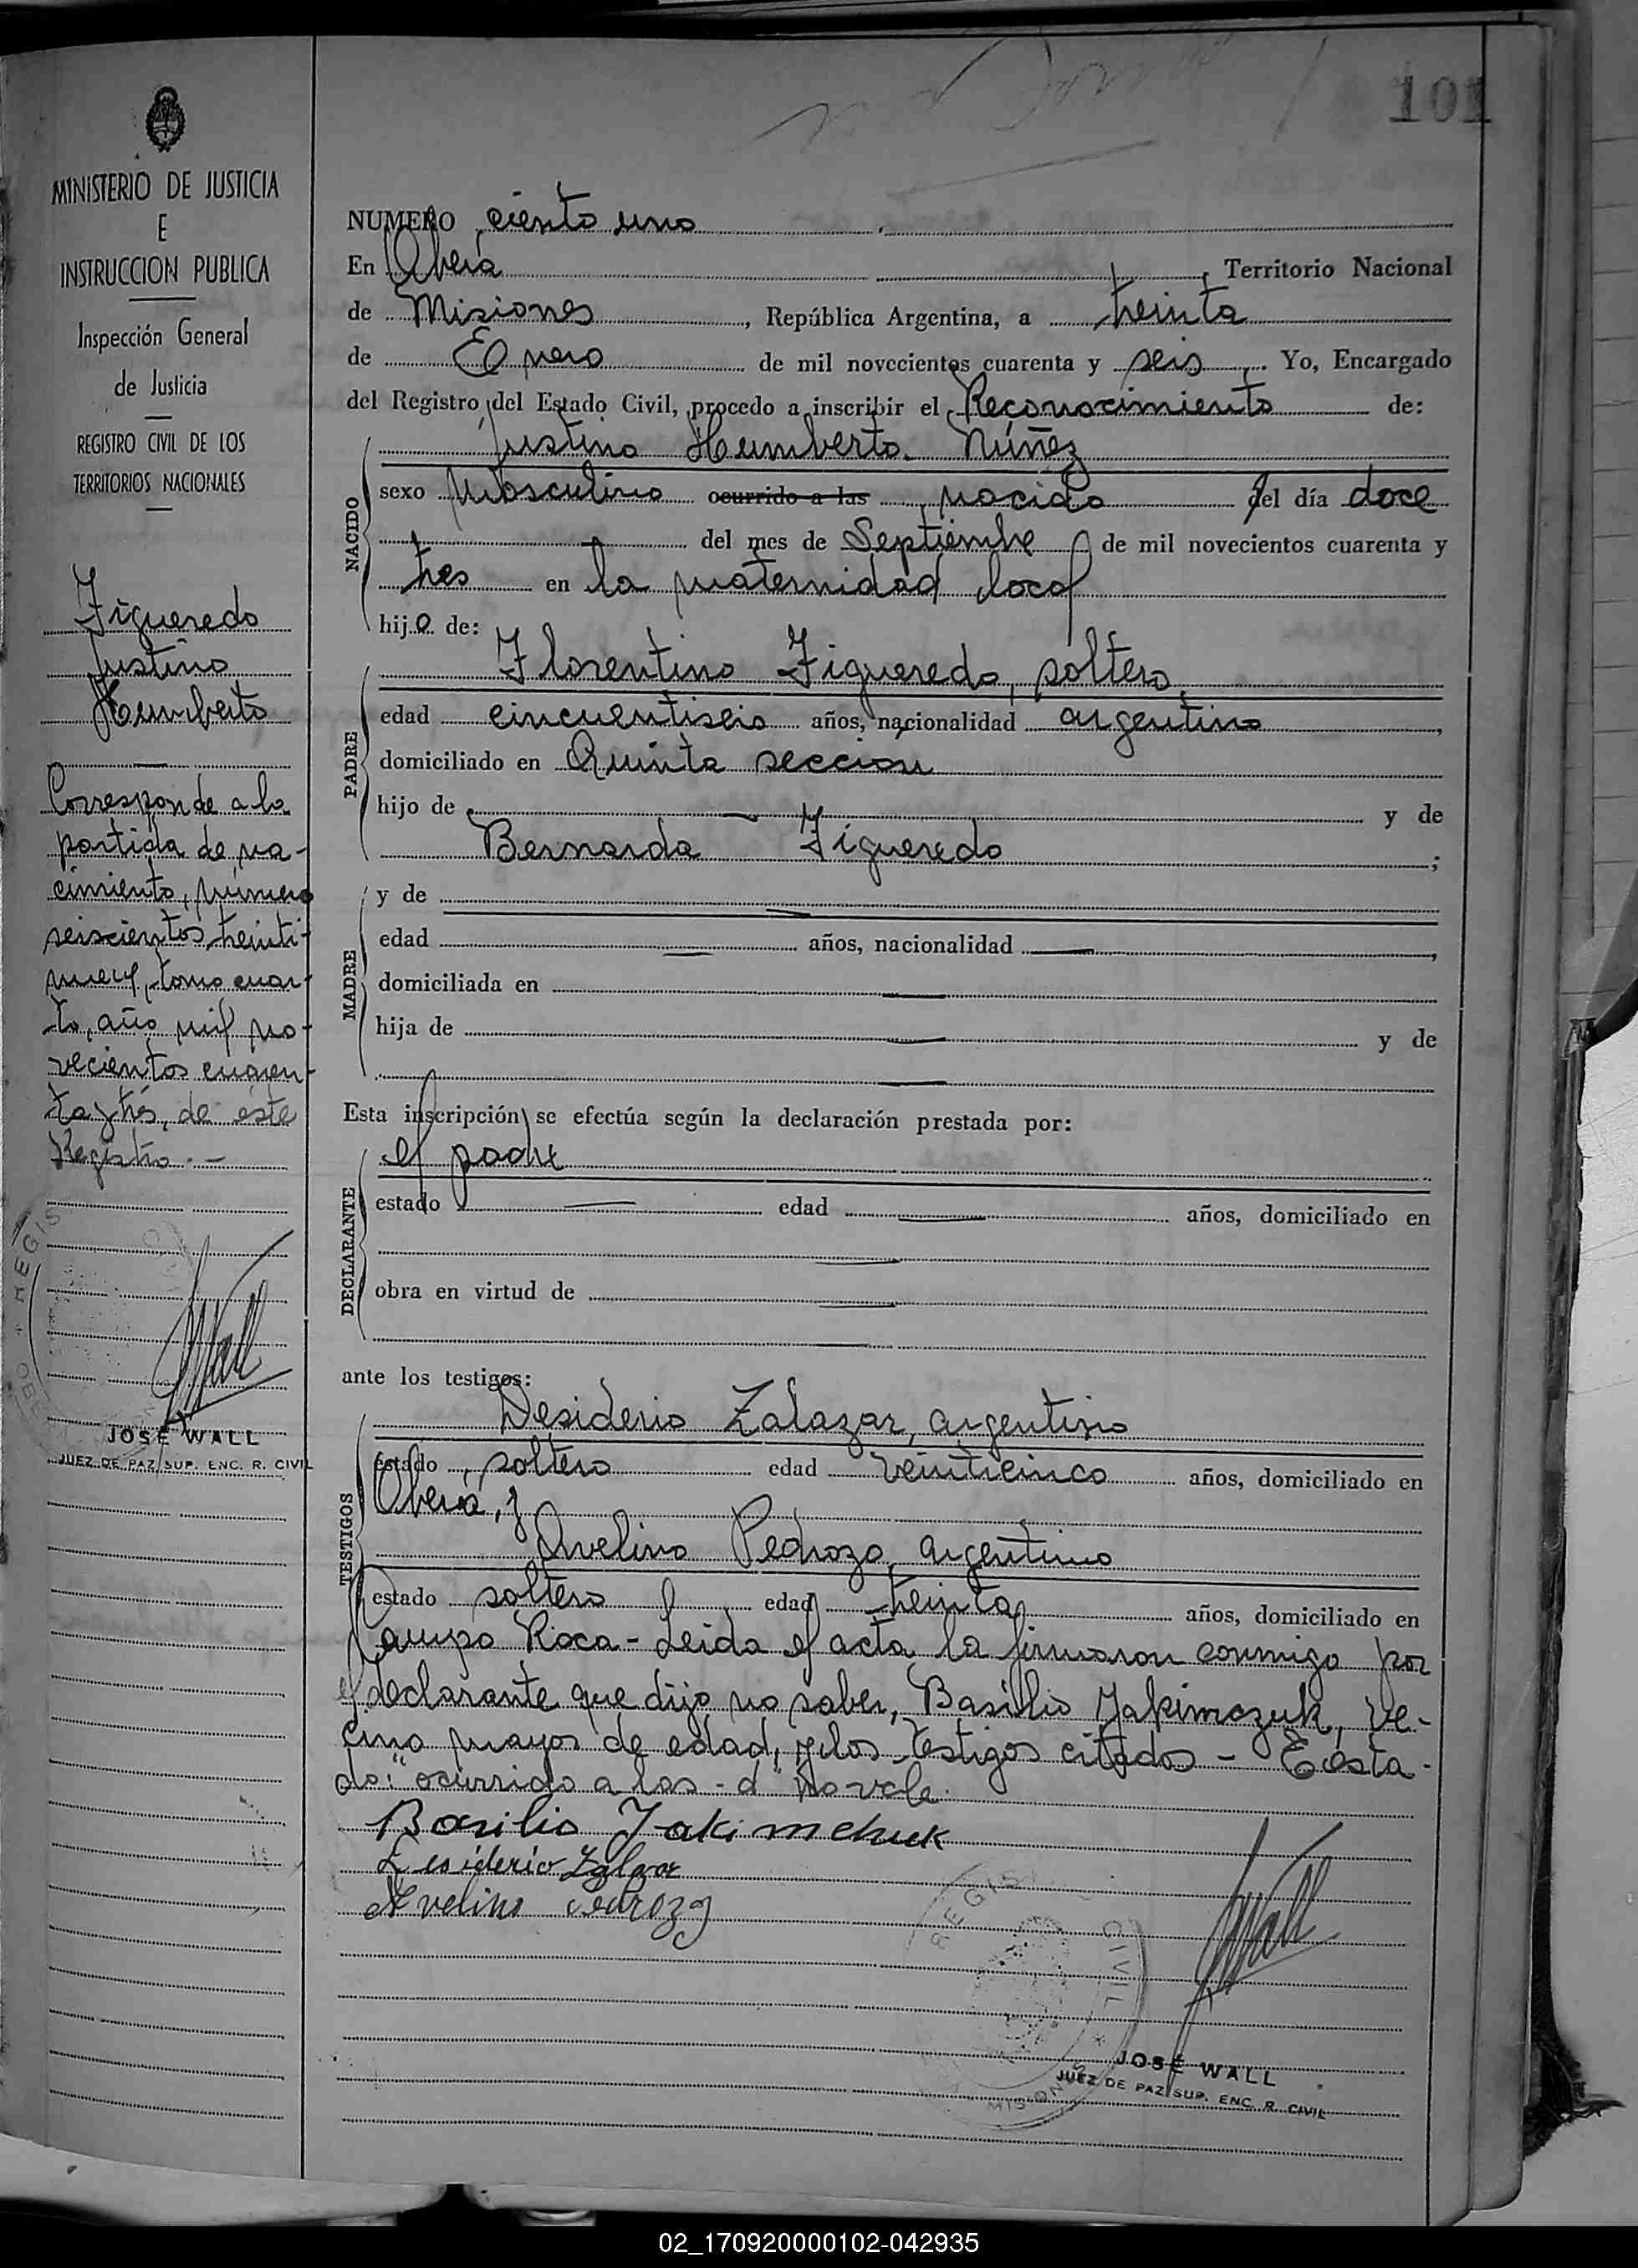 101
MINISTERIO DE JUSTICIA
E
INSTRUCCION PUBLICA
Inspección General
de Justicia
REGISTRO CIVIL DE LOS
TERRITORIOS NACIONALES
Figueredo
Justino
Humberto
Corresponde a la
partida de na-
cimiento, número
seiscientos treinti-
nueve, tomo cuar-
to, año mil no-
vecientos cuaren-
ta y tres, de este
Registro.-
Wall
JOSÉ WALL
JUEZ DE PAZ SUP. ENC. R. CIVIL
NUMERO ciento uno
En Oberá, Territorio Nacional
de Misiones, República Argentina, a treinta
de Enero de mil novecientos cuarenta y seis. Yo, Encargado
del Registro del Estado Civil, procedo a inscribir el Reconocimiento de:
Justino Humberto Núñez
NACIDO
sexo Masculino ocurrido a las nacido del día doce
del mes de Septiembre de mil novecientos cuarenta y
tres en la maternidad local
hijo de:
Florentino Figueredo, soltero,
PADRE
edad cincuentiseis años, nacionalidad argentino,
domiciliado en Quinta seccion
hijo de — y de
Bernarda Figueredo;
MADRE
y de —
edad — años, nacionalidad —,
domiciliada en —
hija de — y de
—
Esta inscripción se efectúa según la declaración prestada por:
el padre
DECLARANTE
estado — edad — años, domiciliado en
—
obra en virtud de —
—
ante los testigos:
Desiderio Zalazar, argentino
TESTIGOS
estado soltero edad veinticinco años, domiciliado en
Oberá, y
Avelino Pedrozo, argentino
estado soltero edad treinta años, domiciliado en
Campo Roca - Leida el acta la firmaron conmigo por
el declarante que dijo no saber, Basilio Jakimczuk, ve-
cino mayor de edad, y los testigos citados - Testa-
do: "ocurrido a las - d" No vale.
Basilio Jakimchuk
Desiderio Zalazar
Avelino Pedrozo
Wall
REGISTRO CIVIL
MISIONES
JOSÉ WALL
JUEZ DE PAZ SUP. ENC. R. CIVIL
02_170920000102-042935